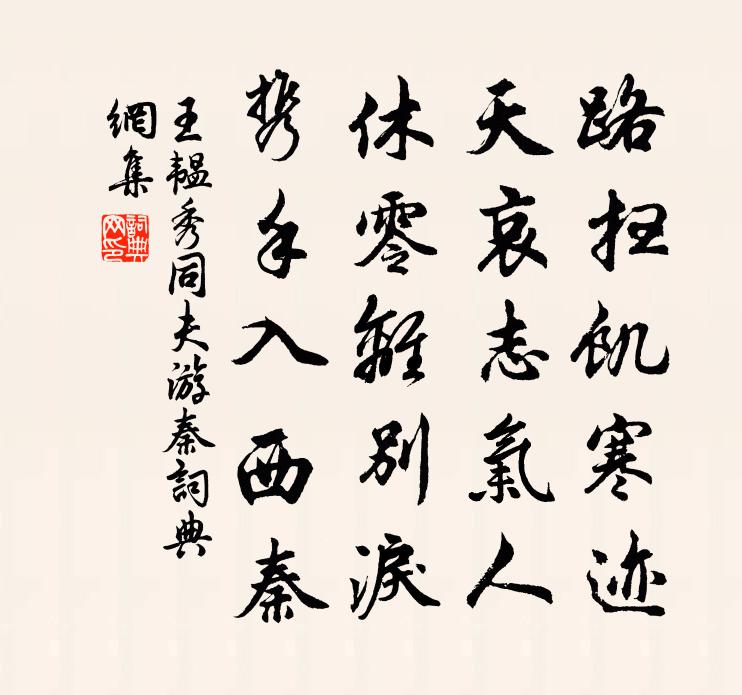 路扫飢寒迹
天哀志氣人
休零離別淚
携手入西秦
王韞秀同夫游秦詞典
網集
詞典網印